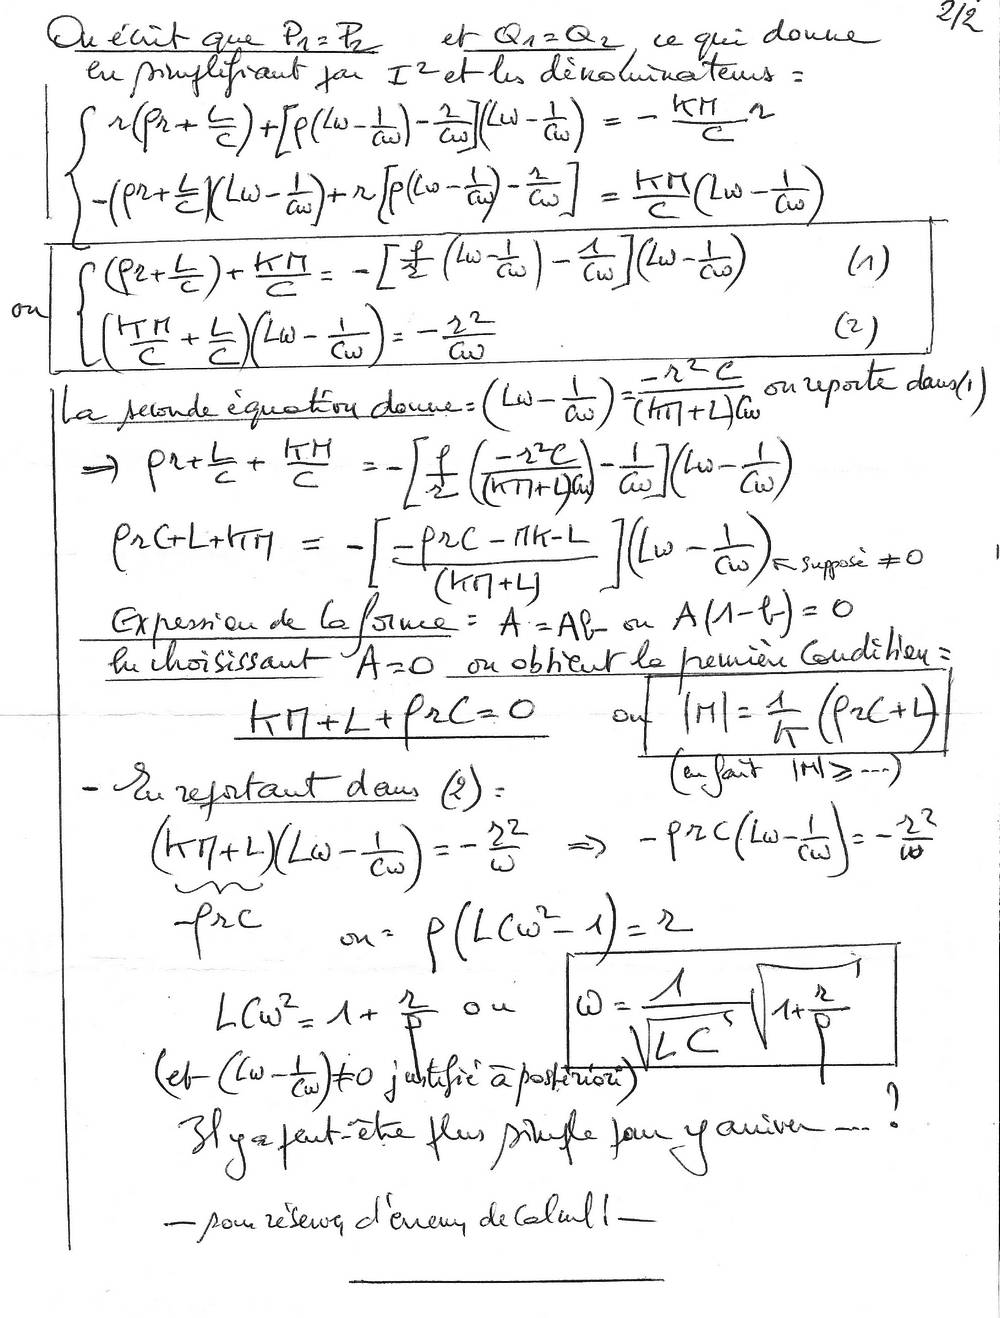 2/2
On écrit que P₁=P₂ et Q₁=Q₂, ce qui donne
en simplifiant par I² et les dénominateurs :
r(ρr+L/C)+[ρ(Lω-1/Cω)-r/Cω](Lω-1/Cω) = -KM/C r
-(ρr+L/C)(Lω-1/Cω)+r[ρ(Lω-1/Cω)-r/Cω] = KM/C(Lω-1/Cω)
ou (ρr+L/C)+KM/C = -[ρ/r(Lω-1/Cω)-1/Cω](Lω-1/Cω) (1)
(KM/C+L/C)(Lω-1/Cω) = -r²/Cω (2)
La seconde équation donne : (Lω-1/Cω) = -r²C/(KM+L)Cω on reporte dans (1)
⇒ ρr+L/C+KM/C = -[ρ/r(-r²C/(KM+L)Cω)-1/Cω](Lω-1/Cω)
ρrC+L+KM = -[-ρrC-MK-L/(KM+L)](Lω-1/Cω) ← supposé ≠0
Expression de la forme : A=Ab ou A(1-b)=0
en choisissant A=0 on obtient la première Condition :
KM+L+ρrC=0 ou |M| = 1/K(ρrC+L)
(en fait |M| ≥ ...)
- En reportant dans (2) :
(KM+L)(Lω-1/Cω) = -r²/ω ⇒ -ρrC(Lω-1/Cω) = -r²/ω
-ρrC ou : ρ(LCω²-1) = r
LCω² = 1+r/ρ ou ω = 1/√LC √1+r/ρ
(et (Lω-1/Cω)≠0 justifié à postériori)
Il y a peut-être plus simple pour y arriver .... ?
— sous réserve d'erreur de calcul ! —